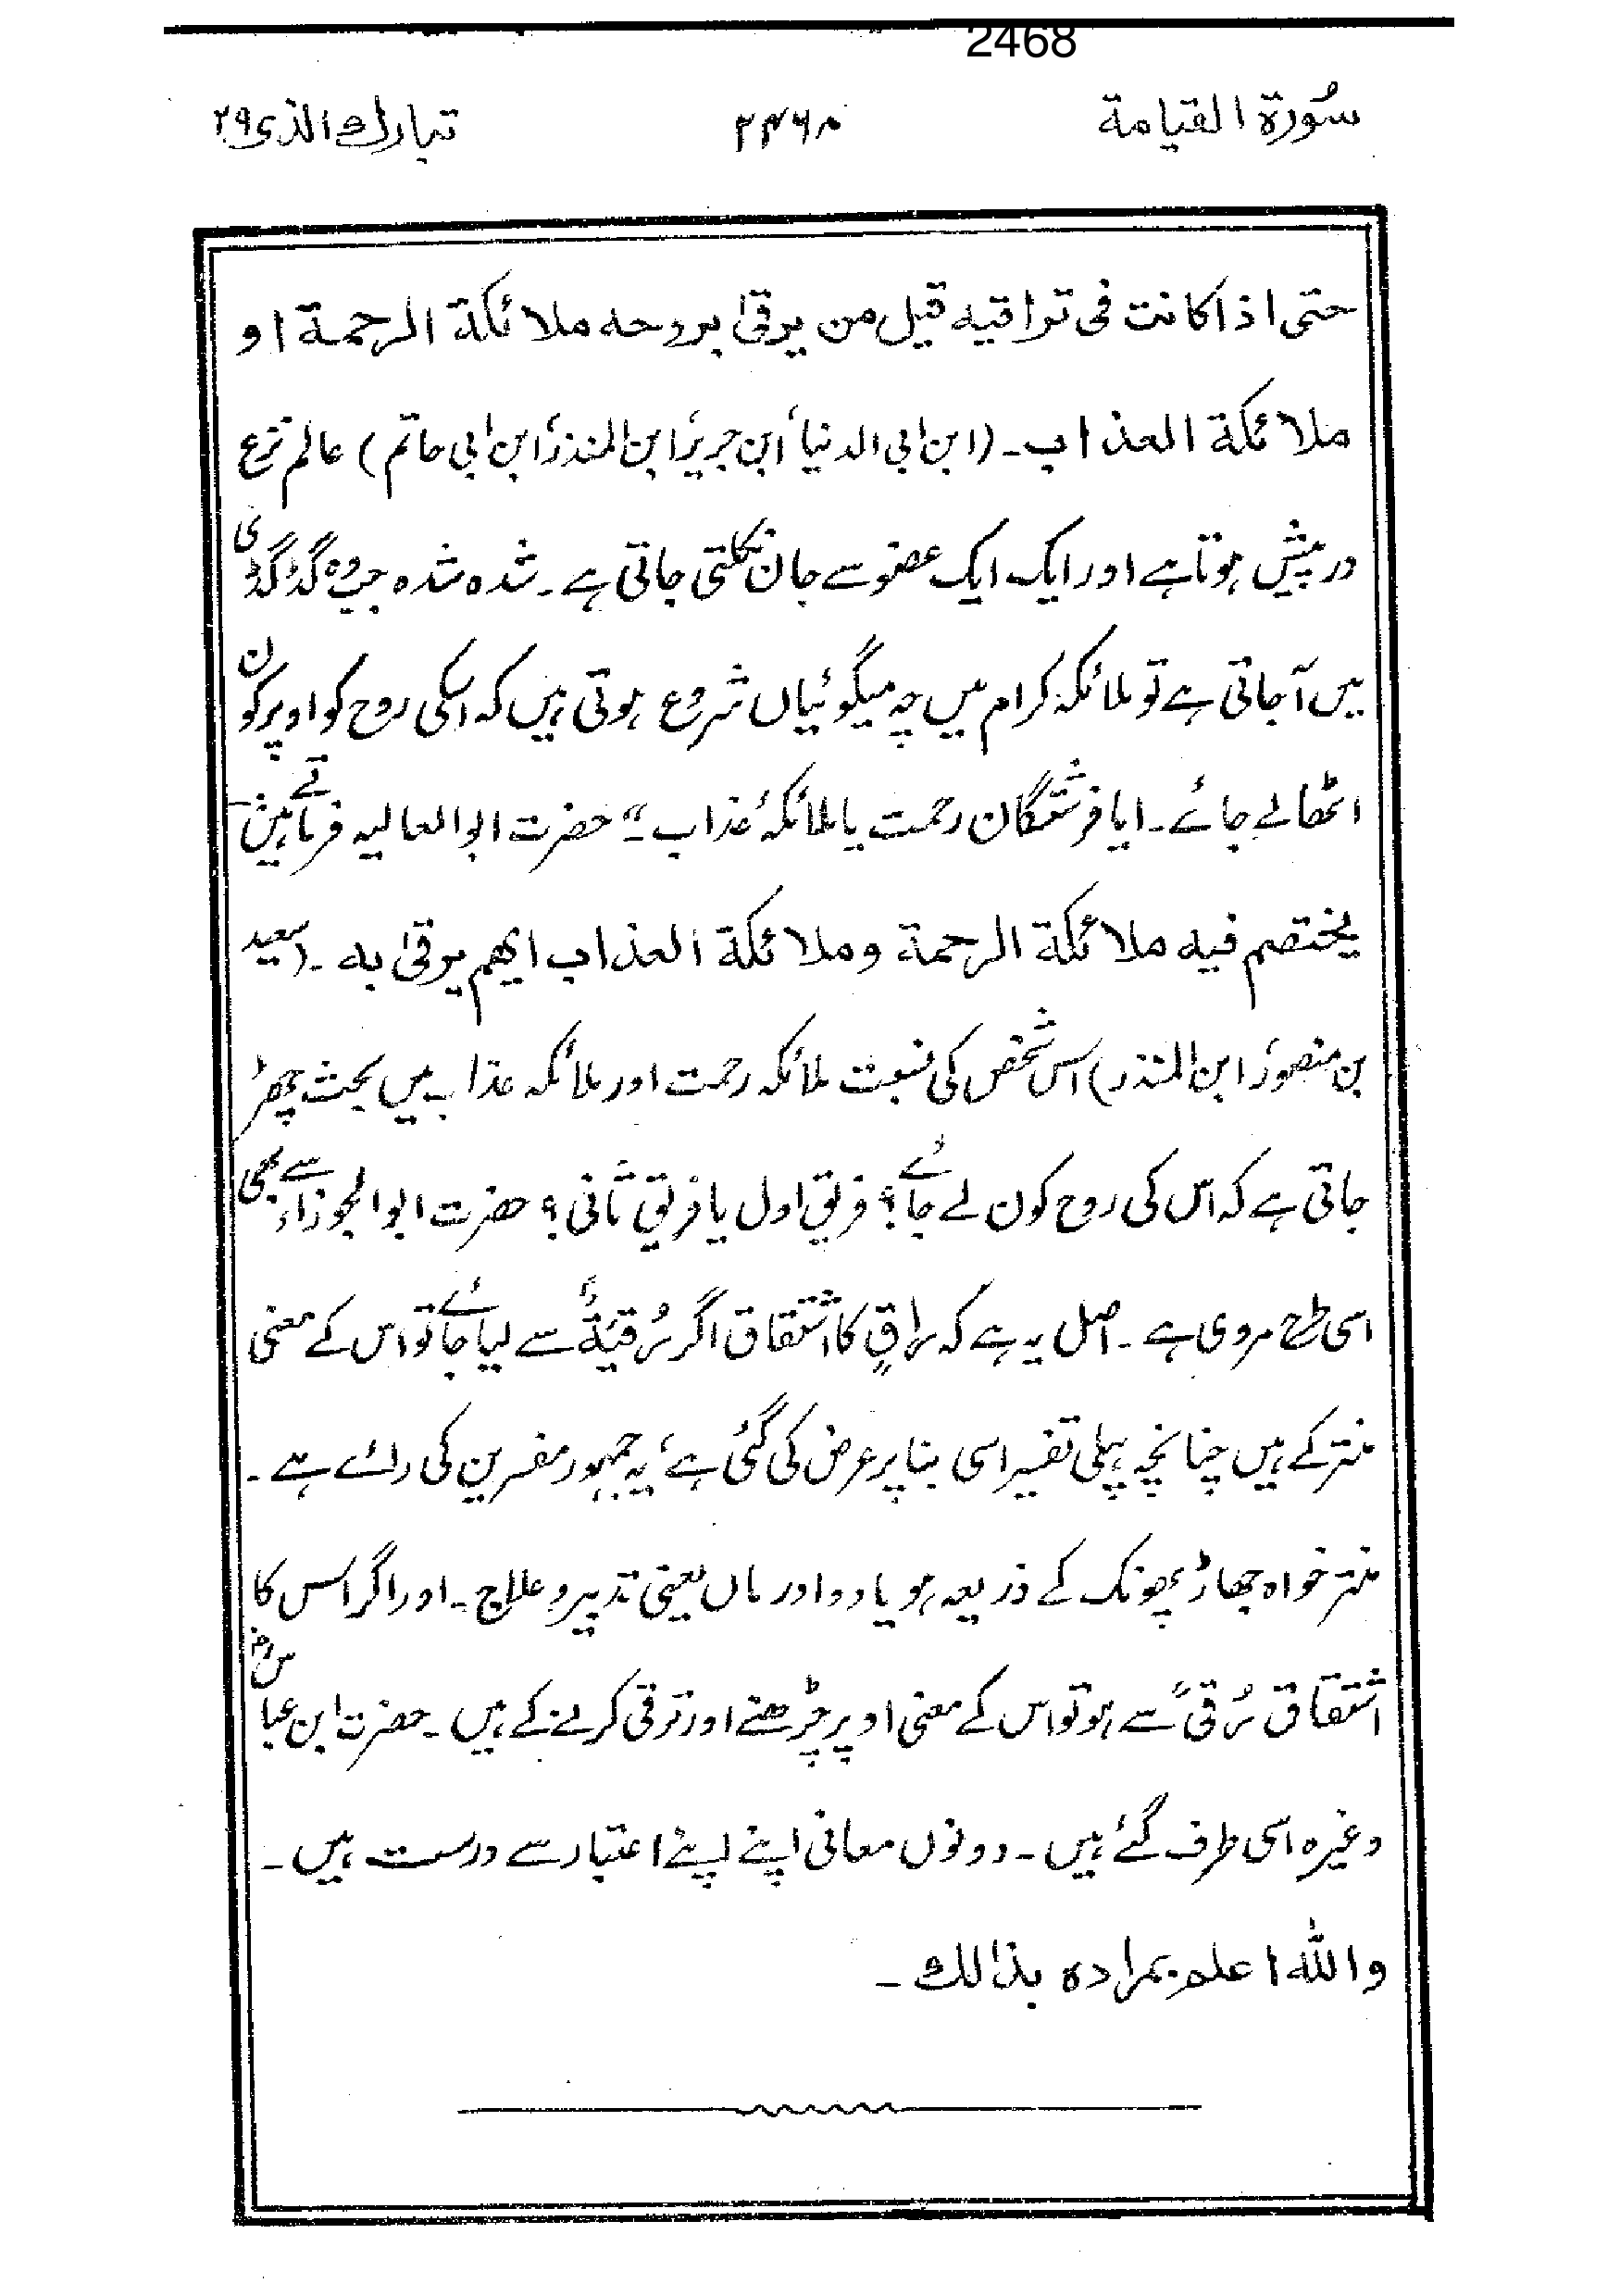 2468
سُورة القیامة ۲۴۶۸ تبارك الذی ۲۹
حتی اذا کانت فی تراقیه قیل من یرقیٰ بروحه ملائکة الرحمة او
ملائکة العذاب۔ (ابن ابی الدنیا، ابن جریر، ابن المنذر، ابن ابی حاتم) عالم نزع
درپیش ہوتا ہے اور ایک ایک عضو سے جان نکلتی جاتی ہے۔ شدہ شدہ جب وہ گڈگڈی
میں آجاتی ہے تو ملائکہ کرام میں چہ میگوئیاں شروع ہوتی ہیں کہ اسکی روح کو اوپر کون
اٹھا لے جائے۔ ایا فرشتگان رحمت یا ملائکۂ عذاب۔“ حضرت ابو العالیہ فرماتے ہیں:۔
یختصم فیه ملائکة الرحمة وملائکة العذاب ایهم یرقیٰ به۔ (سعید
بن منصور، ابن المنذر) اس شخص کی نسبت ملائکہ رحمت اور ملائکہ عذاب میں بحث چھڑ
جاتی ہے کہ اس کی روح کون لے جائے؟ فریق اول یا فریق ثانی؟ حضرت ابو الجوزاء سے بھی
اسی طرح مروی ہے۔ اصل یہ ہے کہ راقٍ کا اشتقاق اگر رُقیَةٌ سے لیا جائے تو اس کے معنی
منتر کے ہیں چنانچہ پہلی تفسیر اسی بنا پر عرض کی گئی ہے، یہ جمہور مفسرین کی رائے ہے۔
منتر خواہ جھاڑ پھونک کے ذریعہ ہو یا دوا درماں یعنی تدبیر و علاج۔ اور اگر اس کا
اشتقاق رُقیً سے ہو تو اس کے معنی اوپر چڑھنے اور ترقی کرنے کے ہیں۔ حضرت ابن عباسؓ
وغیرہ اسی طرف گئے ہیں۔ دونوں معانی اپنے اپنے اعتبار سے درست ہیں۔
واللّٰه اعلم بمراده بذالك۔